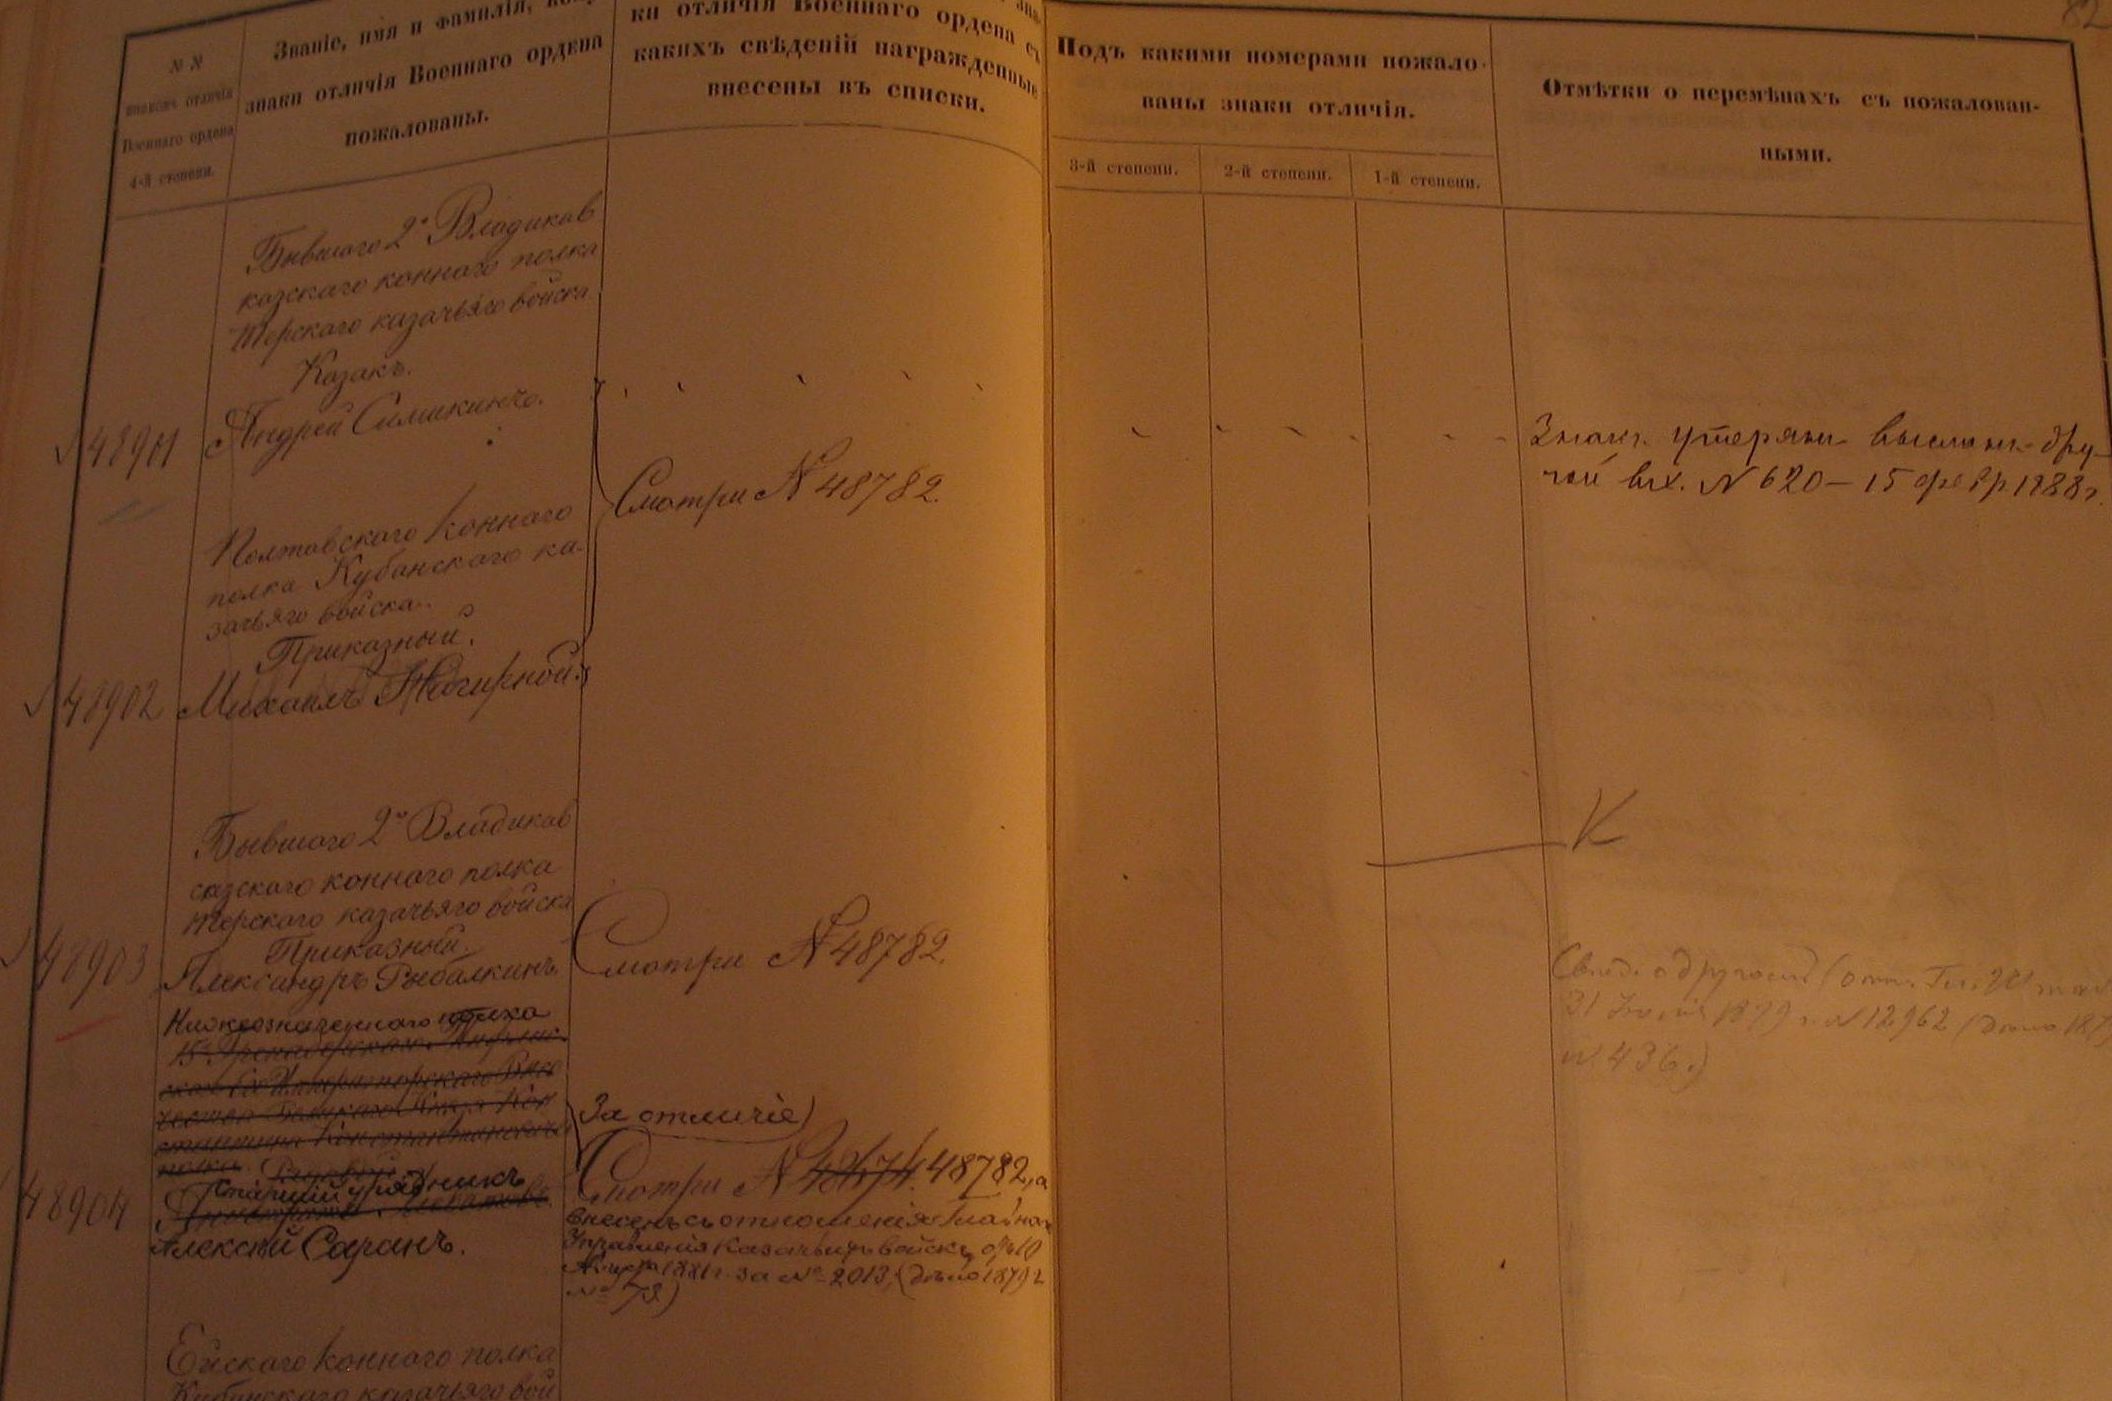 82
№ №
знаковъ отличія
Военнаго ордена
4-й степени.
Званіе, имя и фамилія,
знаки отличія Военнаго ордена
пожалованы.
ки отличія Военнаго ордена съ
какихъ свѣденій награжденные
внесены въ списки.
Подъ какими номерами пожало-
ваны знаки отличія.
3-й степени.
2-й степени.
1-й степени.
Отмѣтки о перемѣнахъ съ пожалован-
ными.
Бывшаго 2го Владикав
казскаго коннаго полка
Терскаго казачьяго войска
Казакъ.
48901
Андрей Симикинъ.
Смотри № 48782.
Знакъ утерянъ высланъ дру-
гой вх. № 620 – 15 февр 1888 г.
Полтавскаго коннаго
полка Кубанскаго ка-
зачьяго войска.
Приказный.
48902
Михаилъ
К
Бывшаго 2го Владикав
казскаго коннаго полка
Терскаго казачьяго войска
Приказный.
48903
Александръ Рыбалкинъ.
Смотри № 48782.
31 1879 г. № 12962
№ 436.)
Нижеозначеннаго полка
За отличіе)
Старшій урядникъ
48904
Алексѣй Саранъ.
Смотри № 48674. 48782, а
внесенъ съ отношенія Главнаго
Управленія Казачьихъ войскъ отъ 10
Августа 1881 г. за № 2013, (дѣло 1879 г.
№ 73)
Ейскаго коннаго полка
Кубанскаго казачьяго вой